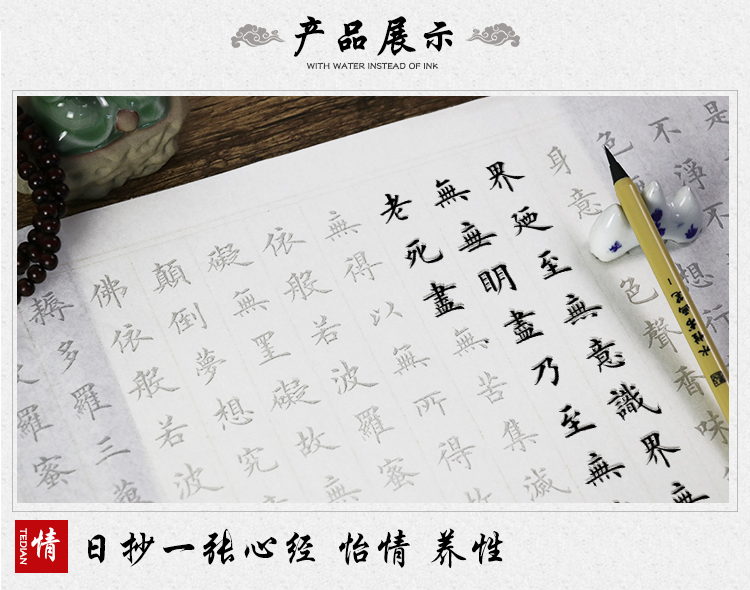 产品展示
WITH WATER INSTEAD OF INK
是
不淨不
色
想行
身意
色聲香味
界廼至無意識界無
無無明盡乃至無
老死盡無苦集滅
無得以無所得故
依般若波羅蜜
礙無罣礙故無
顛倒夢想究
佛依般若波
耨多羅三藐
羅蜜
TEDIAN
情
日抄一张心经 怡情 养性